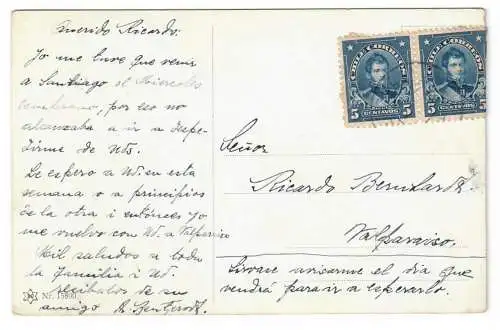 Querido Ricardo:
Yo me tuve que venir
a Santiago el Miercoles
temprano, por eso no
alcanzaba a ir a despe-
dirme de Uds.
Le espero a Ud. en esta
semana o a principios
de la otra i entónces yo
me vuelvo con Ud. a Valparaiso
Mil saludos a toda
la familia i Ud.
recíbalos de su
amigo
Nr. 15800
CHILE CORREOS
5 CENTAVOS 5
CHILE CORREOS
5 CENTAVOS 5
Señor
Ricardo Bernhardt
Valparaiso.
Sirvase avisarme el dia que
vendrá para ir a esperarlo.